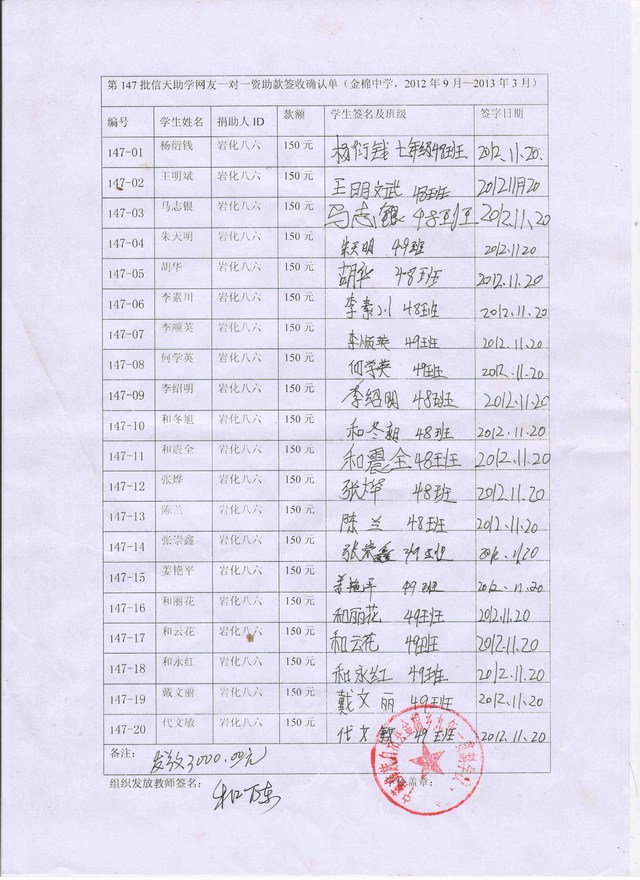 第147批信天助学网友一对一资助款签收确认单（金棉中学，2012年9月—2013年3月）
编号 学生姓名 捐助人ID 款额 学生签名及班级 签字日期
147-01 杨衍钱 岩化八六 150元 杨衍钱 七年级48班 2012.11.20.
147-02 王明斌 岩化八六 150元 王明文武 48班 2012 11月20
147-03 马志银 岩化八六 150元 马志银 48班 2012.11.20
147-04 朱天明 岩化八六 150元 朱天明 49班 2012.11.20
147-05 胡华 岩化八六 150元 胡华 48班 2012.11.20
147-06 李素川 岩化八六 150元 李素川 48班 2012.11.20
147-07 李顺英 岩化八六 150元 李顺英 49班 2012.11.20
147-08 何学英 岩化八六 150元 何学英 49班 2012.11.20
147-09 李绍明 岩化八六 150元 李绍明 48班 2012.11.20
147-10 和冬旭 岩化八六 150元 和冬旭 48班 2012.11.20
147-11 和震全 岩化八六 150元 和震全 48班 2012.11.20
147-12 张烨 岩化八六 150元 张烨 48班 2012.11.20
147-13 陈兰 岩化八六 150元 陈兰 48班 2012.11.20
147-14 张崇鑫 岩化八六 150元 张崇鑫 49班 2012.11.20
147-15 姜艳平 岩化八六 150元 姜艳平 49班 2012.11.20
147-16 和丽花 岩化八六 150元 和丽花 49班 2012.11.20
147-17 和云花 岩化八六 150元 和云花 49班 2012.11.20
147-18 和永红 岩化八六 150元 和永红 49班 2012.11.20
147-19 戴文丽 岩化八六 150元 戴文丽 49班 2012.11.20
147-20 代文敏 岩化八六 150元 代文敏 49班 2012.11.20
备注： 发放3000.00元
组织发放教师签名： 盖章：